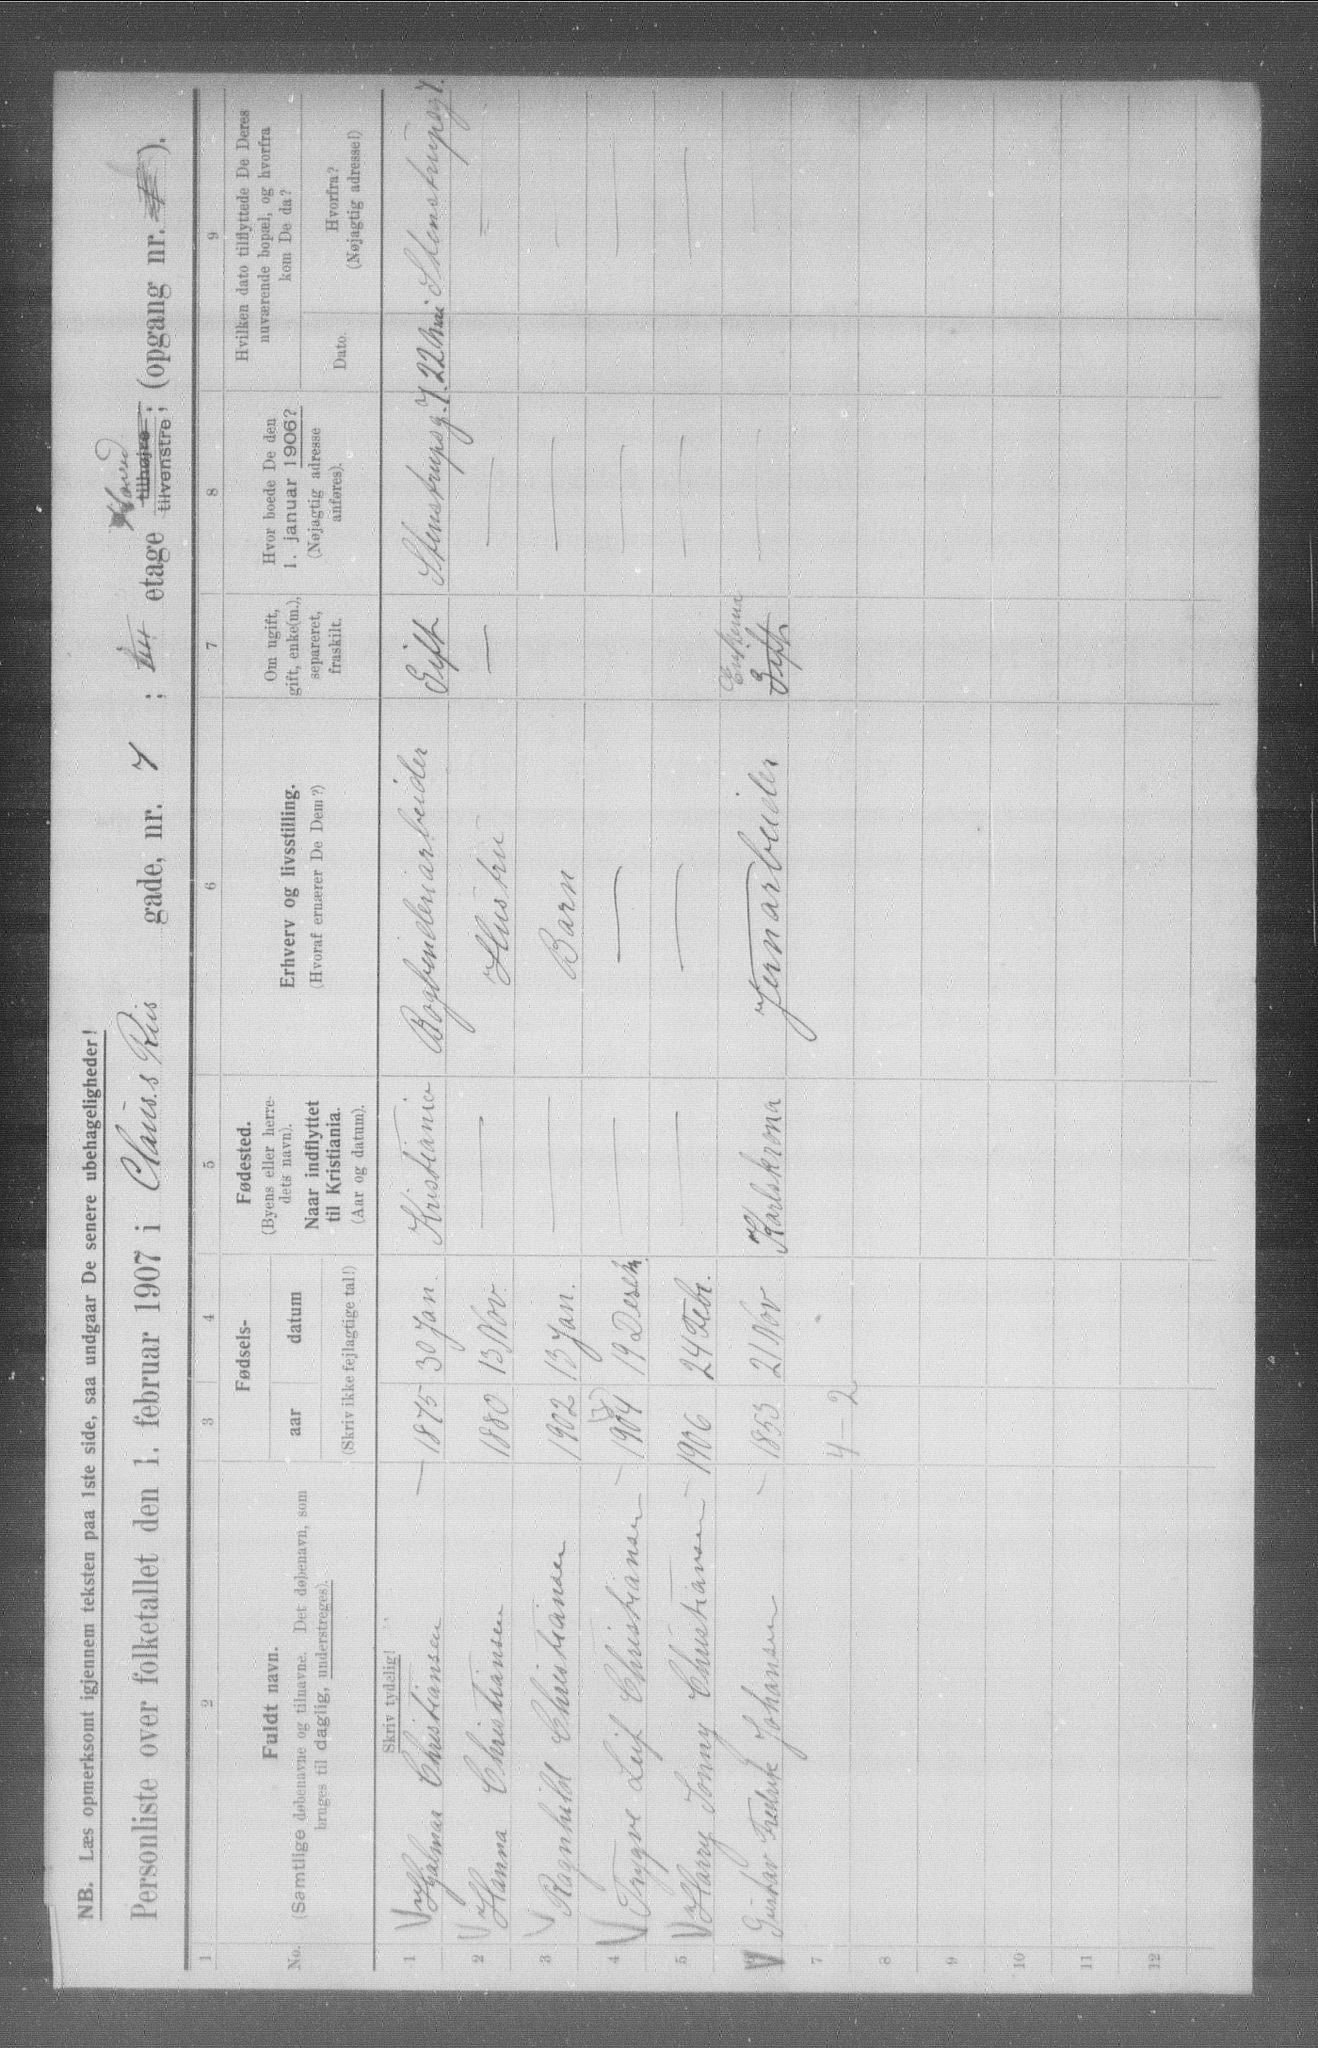 NB. Læs opmerksomt igjennem teksten paa 1ste side, saa undgaar De senere ubehageligheder!
Personliste over folketallet den 1. februar 1907 i Claus Riis gade, nr. 7 ; etage tilhøjre; tilvenstre; (opgang nr. ).
1 2 3 4 5 6 7 8 9
No.
Fuldt navn.
(Samtlige døbenavne og tilnavne. Det døbenavn, som
bruges til daglig, understreges).
Fødsels-
aar datum
(Skriv ikke fejlagtige tal!)
Fødested.
(Byens eller herre-
dets navn).
Naar indflyttet
til Kristiania.
(Aar og datum).
Erhverv og livsstilling.
(Hvoraf ernærer De Dem?)
Om ugift,
gift, enke(m.),
separeret,
fraskilt.
Hvor boede De den
1. januar 1906?
(Nøjagtig adresse
anføres).
Hvilken dato tilflyttede De Deres
nuværende bopæl, og hvorfra
kom De da?
Dato.
Hvorfra?
(Nøjagtig adresse!)
Skriv tydelig!
1 Hjalmar Christiansen — 1875 30 Jan. Kristiania Bogbinderiarbeider Gift Stenstrupsg. 7. 22 Stenstrupsg 7.
2 Hanna Christiansen 1880 13 Nov. — Hustru — — —
3 Ragnhild Christiansen 1902 13 Jan. — Barn — —
4 Trygve Leif Christiansen — 1904 19 Desem. — — — —
5 Harry Conny Christiansen — 1906 24 Febr. — — — —
Gustav Fredrik Johansen — 1853 21 Nov Karlskrona Jernarbeider Gift — —
7 4-2
8
9
10
11
12